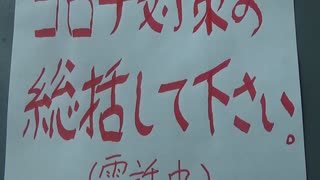 コロナ対策の
総括して下さい。
(電話中)